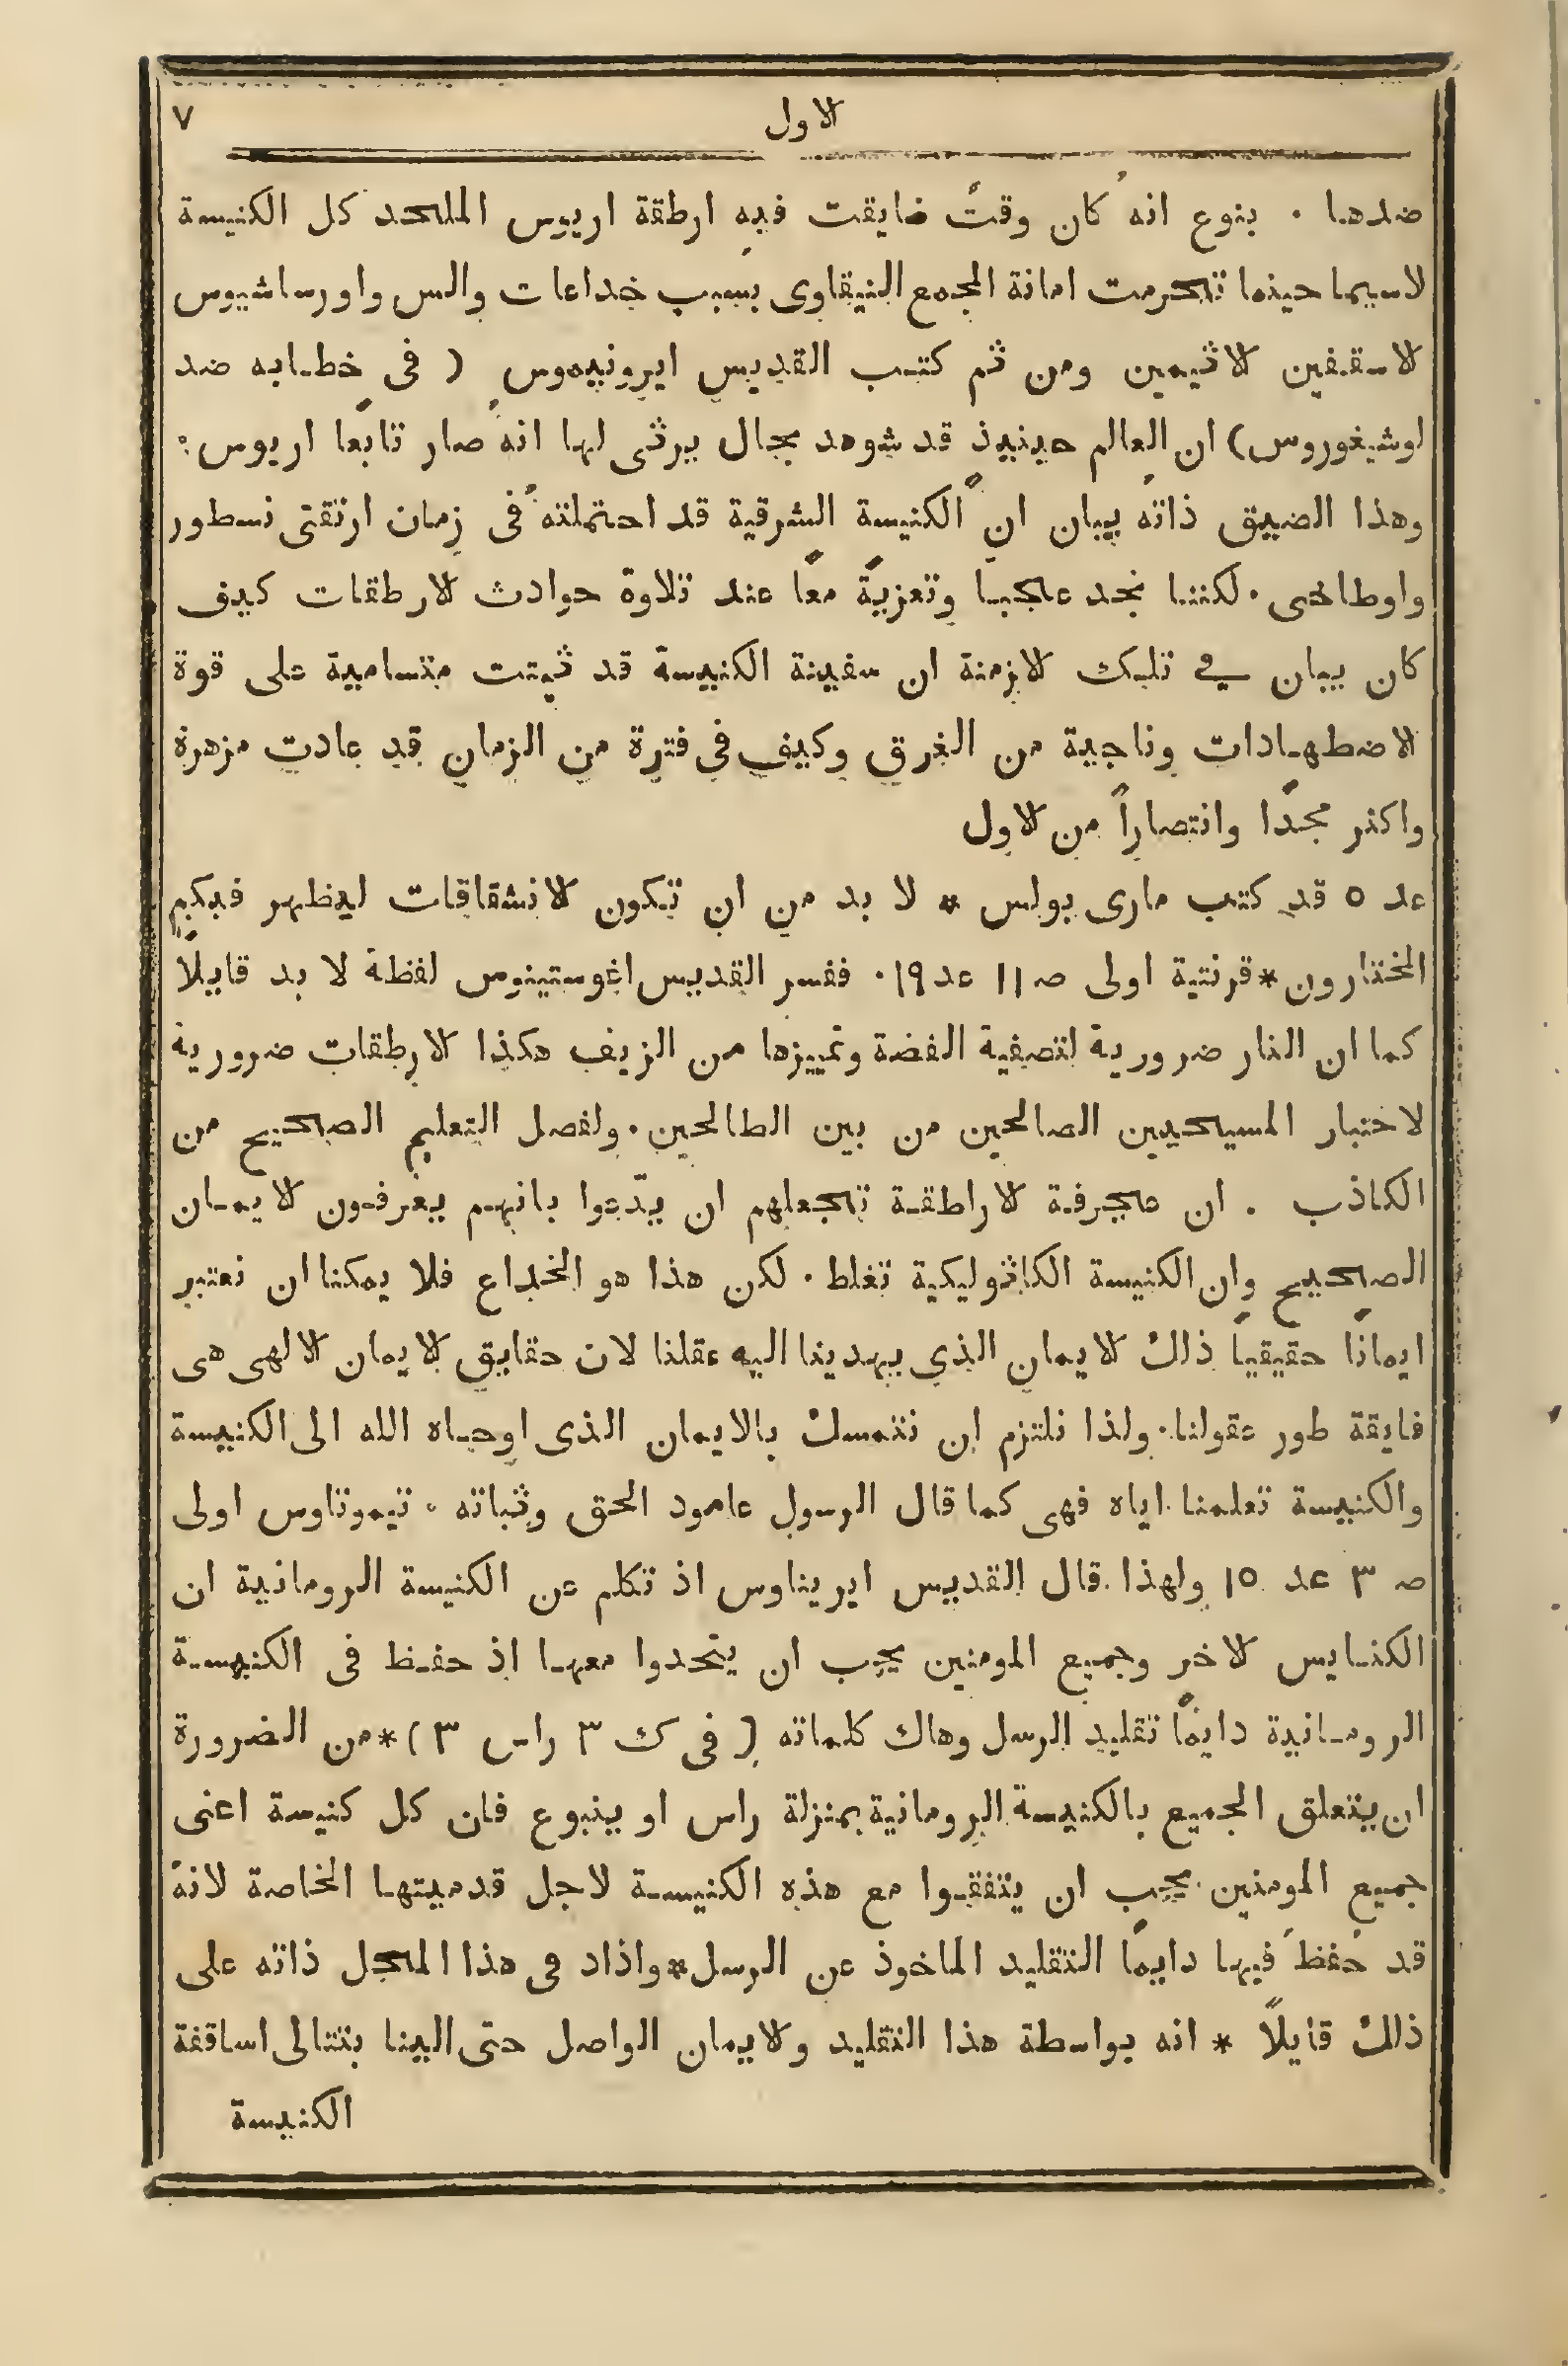 الاول
٧
ضدها . بنوع انهُ كان وقتٌ ضايقت فيه ارطقة اريوس الملحد كل الكنيسة
لاسيما حينما تحرمت امانة المجمع النيقاوى بسبب خداعات والس واورساشيوس
الاسقفين الاثيمين ومن ثم كتب القديس ايرونيموس ( فى خطابه ضد
لوشيفوروس) ان العالم حينيذ قد شوهد بحال يرثى لها انهُ صار تابعًا اريوس :
وهذا الضيق ذاته يبان ان الكنيسة الشرقية قد احتملتهُ فى زمان ارتقتى نسطور
واوطاخى . لكننا نجد عجبًا وتعزيةً معًا عند تلاوة حوادث الارطقات كيف
كان يبان في تليك الازمنة ان سفينة الكنيسة قد ثبتت متسامية على قوة
الاضطهادات وناجية من الغرق وكيف فى فترة من الزمان قد عادت مزهرة
واكثر مجدًا وانتصاراً من الاول
عد ٥ قد كتب مارى بولس * لا بد من ان تكون الانشقاقات ليظهر فيكم
المختارون * قرنتية اولى صـ ١١ عد ١٩ . ففسر القديس اغوستينوس لفظة لا بد قايلًا
كما ان النار ضرورية لتصفية الفضة وتمييزها من الزيف هكذا الارطقات ضرورية
لاختبار المسيحيين الصالحين من بين الطالحين . ولفصل التعليم الصحيح من
الكاذب . ان عجرفة الاراطقة تجعلهم ان يدّعوا بانهم يعرفون الايمان
الصحيح وان الكنيسة الكاثوليكية تغلط . لكن هذا هو الخداع فلا يمكنا ان نعتبر
ايمانًا حقيقياً ذلك الايمان الذي يهدينا اليه عقلنا لان حقايق الايمان الالهى هى
فايقة طور عقولنا . ولذا نلتزم ان نتمسك بالايمان الذى اوحاه الله الى الكنيسة
والكنيسة تعلمنا اياه فهى كما قال الرسول عامود الحق وثباته . تيموتاوس اولى
صـ ٣ عد ١٥ ولهذا قال القديس ايريناوس اذ تكلم عن الكنيسة الرومانية ان
الكنايس الاخر وجميع المومنين يجب ان يتحدوا معها اذ حفظ فى الكنيسة
الرومانية دايمًا تقليد الرسل وهاك كلماته ( فى ك ٣ راس ٣ ) * من الضرورة
ان يتعلق الجميع بالكنيسة الرومانية بمنزلة راس او ينبوع فان كل كنيسة اعنى
جميع المومنين يجب ان يتفقوا مع هذه الكنيسة لاجل قدميتها الخاصة لانهُ
قد حُفظَ فيها دايمًا التقليد الماخوذ عن الرسل * واذاد فى هذا المحل ذاته على
ذلك قايلًا * انه بواسطة هذا التقليد والايمان الواصل حتى الينا بتتالى اساقفة
الكنيسة